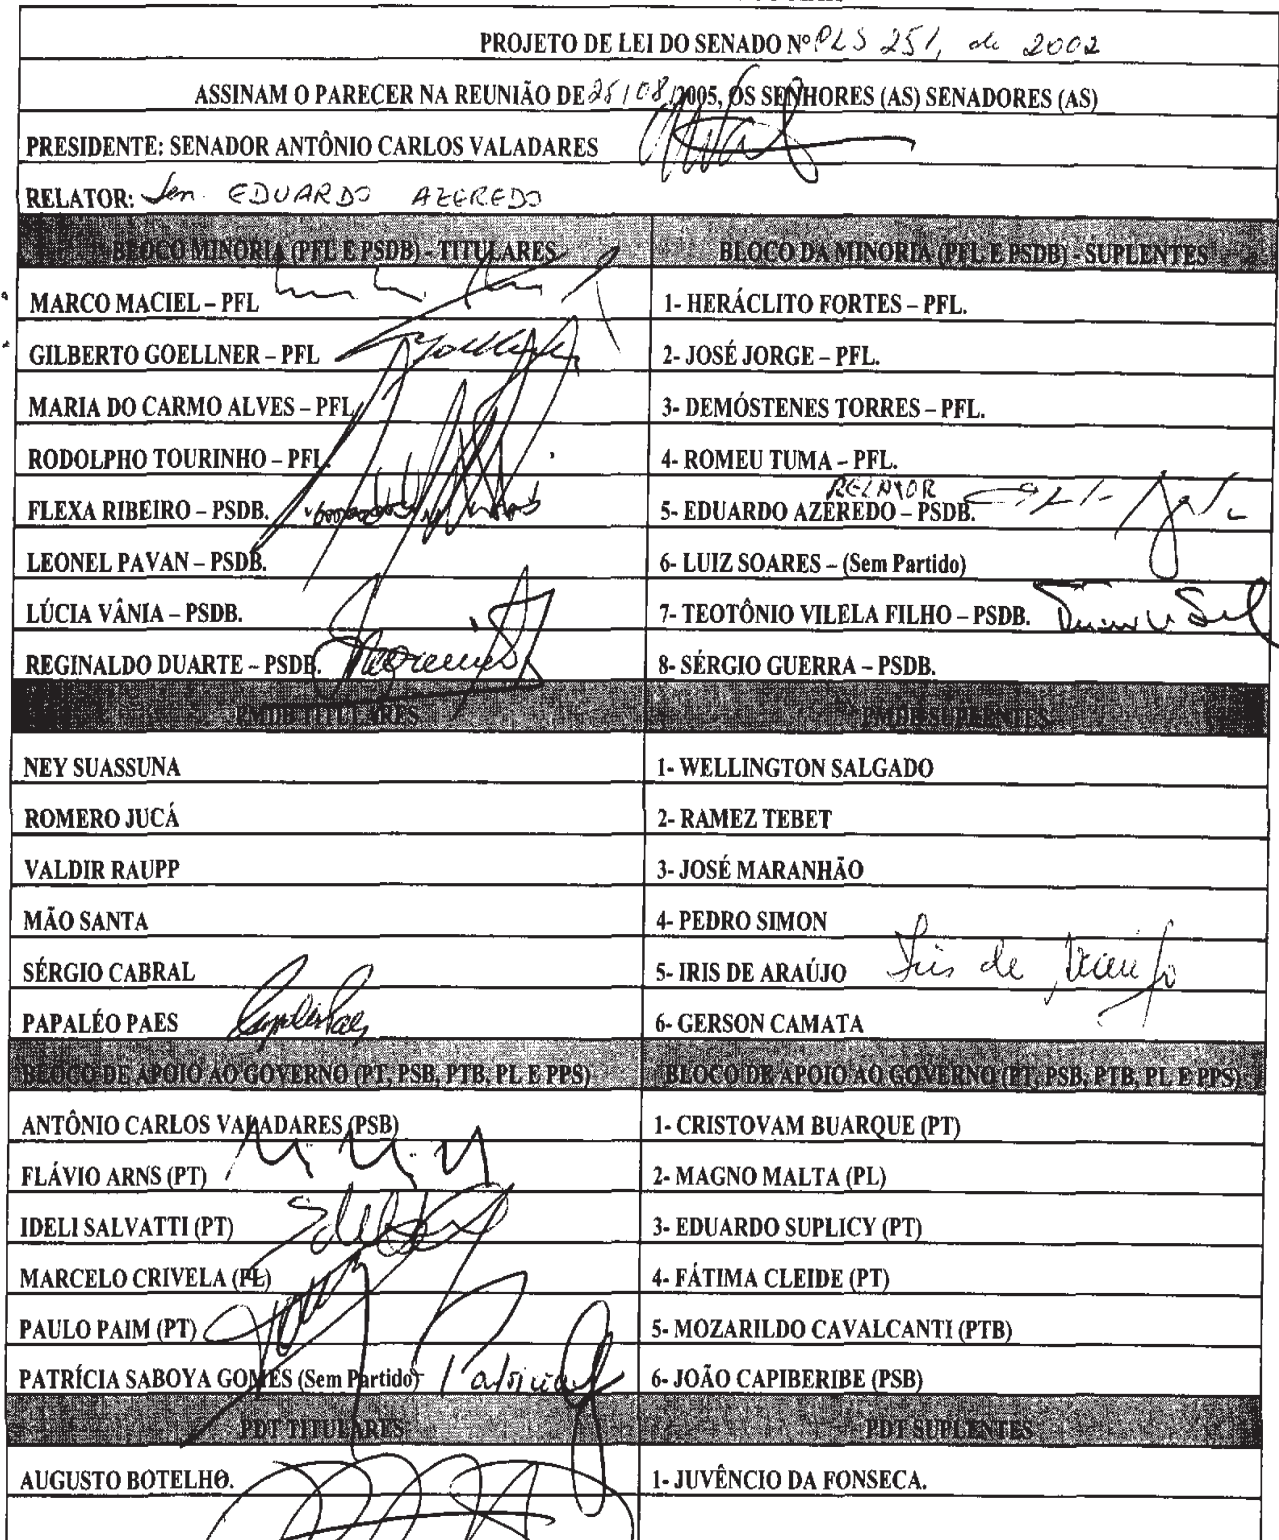 PROJETO DE LEI DO SENADO Nº PLS 251, de 2002
ASSINAM O PARECER NA REUNIÃO DE 25/08/2005, OS SENHORES (AS) SENADORES (AS)
PRESIDENTE: SENADOR ANTÔNIO CARLOS VALADARES
RELATOR: Sen. EDUARDO AZEREDO
BLOCO MINORIA (PFL E PSDB) - TITULARES
BLOCO DA MINORIA (PFL E PSDB) - SUPLENTES
MARCO MACIEL – PFL
1- HERÁCLITO FORTES – PFL.
GILBERTO GOELLNER – PFL
2- JOSÉ JORGE – PFL.
MARIA DO CARMO ALVES – PFL
3- DEMÓSTENES TORRES – PFL.
RODOLPHO TOURINHO – PFL
4- ROMEU TUMA – PFL.
RELATOR
FLEXA RIBEIRO – PSDB.
5- EDUARDO AZEREDO – PSDB.
LEONEL PAVAN – PSDB.
6- LUIZ SOARES – (Sem Partido)
LÚCIA VÂNIA – PSDB.
7- TEOTÔNIO VILELA FILHO – PSDB.
REGINALDO DUARTE – PSDB.
8- SÉRGIO GUERRA – PSDB.
PMDB TITULARES
PMDB SUPLENTES
NEY SUASSUNA
1- WELLINGTON SALGADO
ROMERO JUCÁ
2- RAMEZ TEBET
VALDIR RAUPP
3- JOSÉ MARANHÃO
MÃO SANTA
4- PEDRO SIMON
SÉRGIO CABRAL
5- IRIS DE ARAÚJO Iris de Araújo
PAPALÉO PAES
6- GERSON CAMATA
BLOCO DE APOIO AO GOVERNO (PT, PSB, PTB, PL E PPS)
BLOCO DE APOIO AO GOVERNO (PT, PSB, PTB, PL E PPS)
ANTÔNIO CARLOS VALADARES (PSB)
1- CRISTOVAM BUARQUE (PT)
FLÁVIO ARNS (PT)
2- MAGNO MALTA (PL)
IDELI SALVATTI (PT)
3- EDUARDO SUPLICY (PT)
MARCELO CRIVELA (PL)
4- FÁTIMA CLEIDE (PT)
PAULO PAIM (PT)
5- MOZARILDO CAVALCANTI (PTB)
PATRÍCIA SABOYA GOMES (Sem Partido)
6- JOÃO CAPIBERIBE (PSB)
PDT TITULARES
PDT SUPLENTES
AUGUSTO BOTELHO.
1- JUVÊNCIO DA FONSECA.